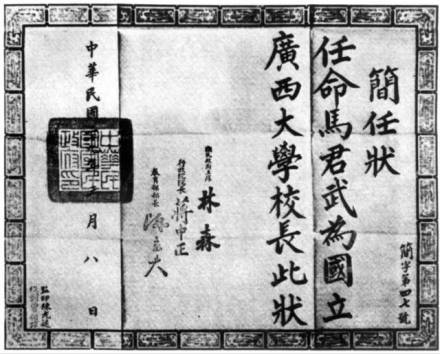 簡字第四七號
簡任狀
任命馬君武為國立
廣西大學校長此狀
國民政府主席 林森
行政院院長 蔣中正
教育部部長 陳立夫
中華民國 月八日
監印陳光遠